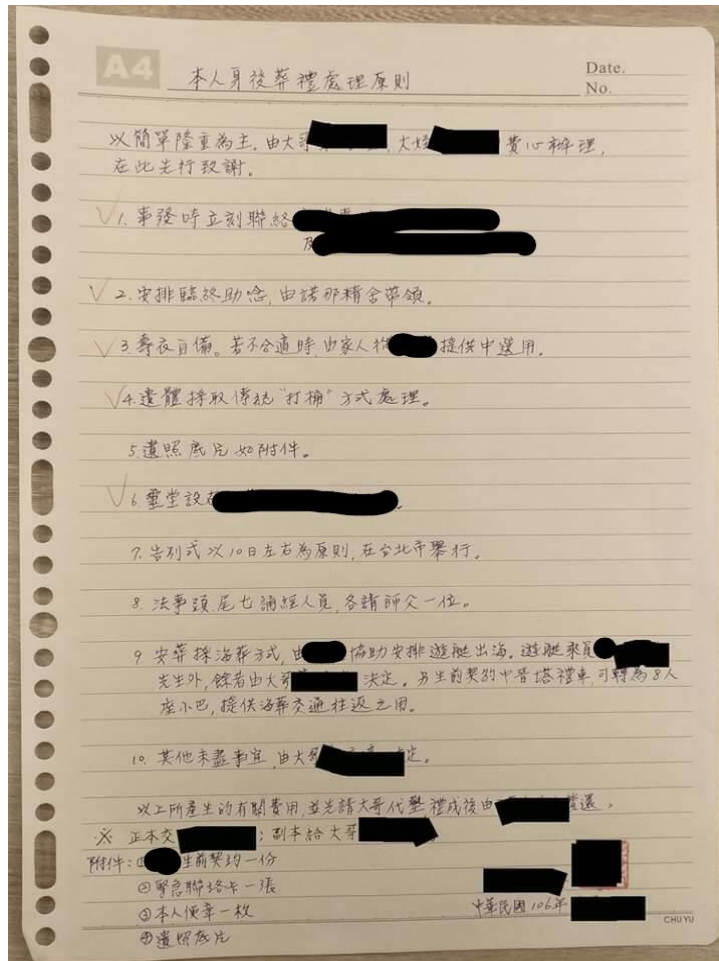 A4
本人身後葬禮處理原則
Date.
No.
以簡單隆重為主。由大哥 大嫂 費心辦理,
在此先行致謝。
1. 事發時立刻聯絡
及
2. 安排臨終助念, 由諾那精舍帶領。
3. 壽衣自備。若不合適時, 由家人從 提供中選用。
4. 遺體採取傳統"打桶"方式處理。
5. 遺照底片如附件。
6. 靈堂設在
7. 告別式以10日左右為原則, 在台北市舉行。
8. 法事頭尾七誦經人員, 各請師父一位。
9. 安葬採海葬方式, 由 協助安排遊艇出海。遊艇乘員
先生外, 餘者由大哥 決定。另生前契約中晉塔禮車, 可轉為8人
座小巴, 提供海葬交通往返之用。
10. 其他未盡事宜, 由大 定。
以上所產生的有關費用, 並先請大哥代墊, 禮成後由 還。
※ 正本交 ; 副本給大哥
附件: ① 生前契約一份
②緊急聯絡卡一張
③本人便章一枚
④遺照底片
中華民國106年
CHUYU